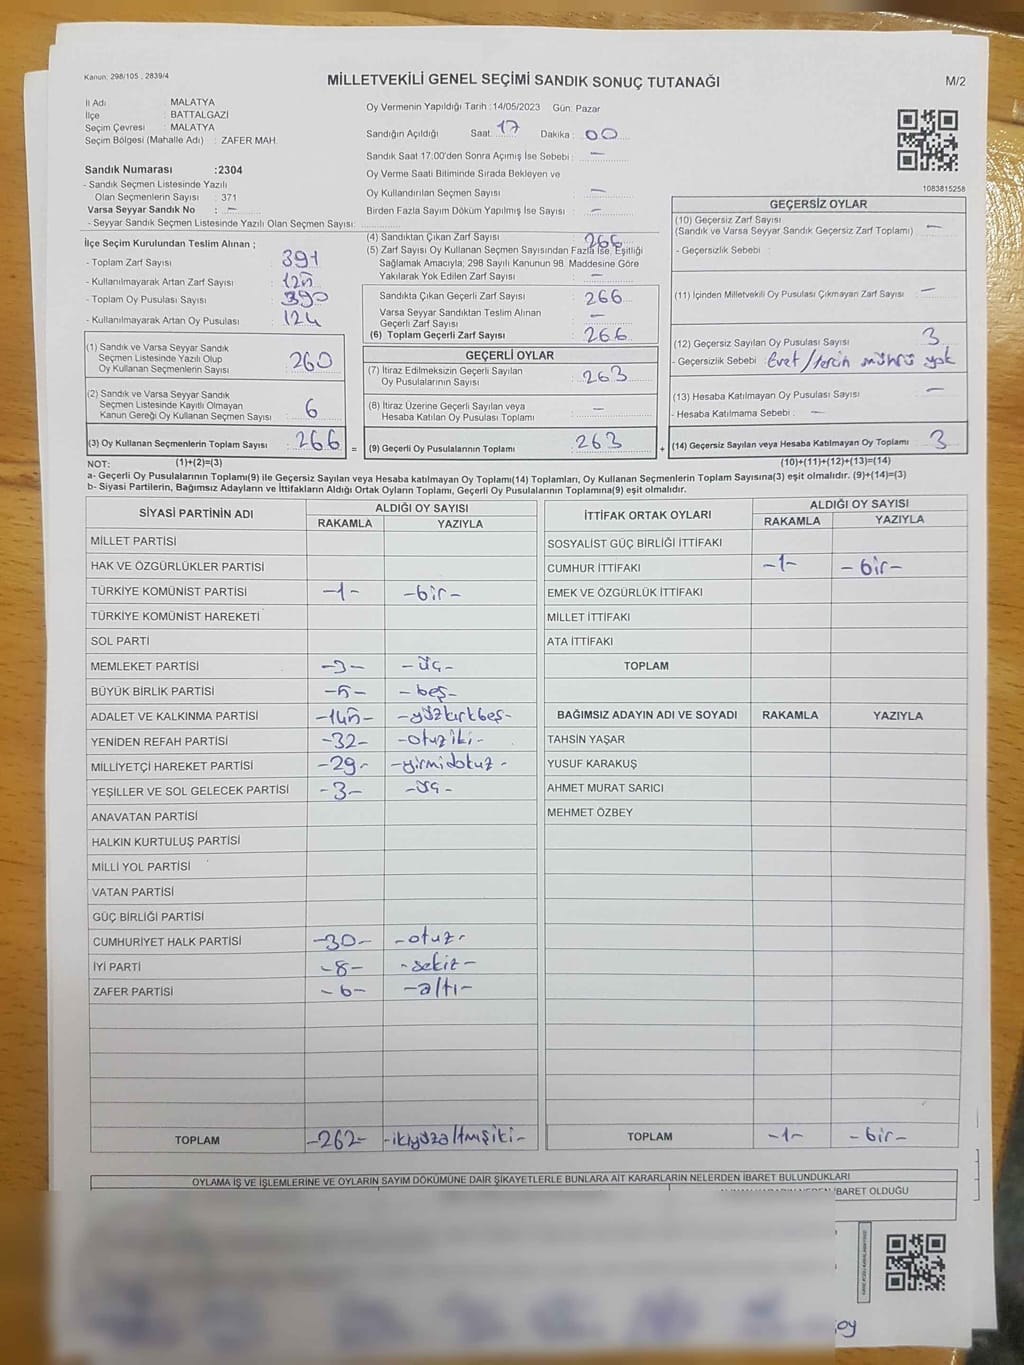 Kanun: 298/105 , 2839/4
MİLLETVEKİLİ GENEL SEÇİMİ SANDIK SONUÇ TUTANAĞI
M/2
İl Adı : MALATYA
İlçe : BATTALGAZİ
Seçim Çevresi : MALATYA
Seçim Bölgesi (Mahalle Adı) : ZAFER MAH.
Sandık Numarası :2304
- Sandık Seçmen Listesinde Yazılı
Olan Seçmenlerin Sayısı : 371
Varsa Seyyar Sandık No : –
- Seyyar Sandık Seçmen Listesinde Yazılı Olan Seçmen Sayısı:
Oy Vermenin Yapıldığı Tarih :14/05/2023 Gün: Pazar
Sandığın Açıldığı Saat: 17 Dakika : 00
Sandık Saat 17:00'den Sonra Açımış İse Sebebi : –
Oy Verme Saati Bitiminde Sırada Bekleyen ve
Oy Kullandırılan Seçmen Sayısı –
Birden Fazla Sayım Döküm Yapılmış İse Sayısı : –
1083815258
İlçe Seçim Kurulundan Teslim Alınan ;
- Toplam Zarf Sayısı : 391
- Kullanılmayarak Artan Zarf Sayısı : 125
- Toplam Oy Pusulası Sayısı : 390
- Kullanılmayarak Artan Oy Pusulası : 124
(1) Sandık ve Varsa Seyyar Sandık
Seçmen Listesinde Yazılı Olup
Oy Kullanan Seçmenlerin Sayısı : 260
(2) Sandık ve Varsa Seyyar Sandık
Seçmen Listesinde Kayıtlı Olmayan
Kanun Gereği Oy Kullanan Seçmen Sayısı : 6
(3) Oy Kullanan Seçmenlerin Toplam Sayısı : 266
(4) Sandıktan Çıkan Zarf Sayısı 266
(5) Zarf Sayısı Oy Kullanan Seçmen Sayısından Fazla İse, Eşitliği
Sağlamak Amacıyla, 298 Sayılı Kanunun 98. Maddesine Göre
Yakılarak Yok Edilen Zarf Sayısı : –
Sandıkta Çıkan Geçerli Zarf Sayısı : 266
Varsa Seyyar Sandıktan Teslim Alınan
Geçerli Zarf Sayısı : –
(6) Toplam Geçerli Zarf Sayısı : 266
GEÇERLİ OYLAR
(7) İtiraz Edilmeksizin Geçerli Sayılan
Oy Pusulalarının Sayısı : 263
(8) İtiraz Üzerine Geçerli Sayılan veya
Hesaba Katılan Oy Pusulaları Toplamı : –
= (9) Geçerli Oy Pusulalarının Toplamı : 263
GEÇERSİZ OYLAR
(10) Geçersiz Zarf Sayısı
(Sandık ve Varsa Seyyar Sandık Geçersiz Zarf Toplamı) : –
- Geçersizlik Sebebi :
(11) İçinden Milletvekili Oy Pusulası Çıkmayan Zarf Sayısı : –
(12) Geçersiz Sayılan Oy Pusulası Sayısı : 3
- Geçersizlik Sebebi : Evet/tercih mührü yok
(13) Hesaba Katılmayan Oy Pusulası Sayısı : –
- Hesaba Katılmama Sebebi : –
+ (14) Geçersiz Sayılan veya Hesaba Katılmayan Oy Toplamı : 3
NOT: (1)+(2)=(3)
(10)+(11)+(12)+(13)=(14)
a- Geçerli Oy Pusulalarının Toplamı(9) ile Geçersiz Sayılan veya Hesaba katılmayan Oy Toplamı(14) Toplamları, Oy Kullanan Seçmenlerin Toplam Sayısına(3) eşit olmalıdır. (9)+(14)=(3)
b- Siyasi Partilerin, Bağımsız Adayların ve İttifakların Aldığı Ortak Oyların Toplamı, Geçerli Oy Pusulalarının Toplamına(9) eşit olmalıdır.
SİYASİ PARTİNİN ADI ALDIĞI OY SAYISI
RAKAMLA YAZIYLA
MİLLET PARTİSİ
HAK VE ÖZGÜRLÜKLER PARTİSİ
TÜRKİYE KOMÜNİST PARTİSİ -1- -bir-
TÜRKİYE KOMÜNİST HAREKETİ
SOL PARTİ
MEMLEKET PARTİSİ -3- -üç-
BÜYÜK BİRLİK PARTİSİ -5- -beş-
ADALET VE KALKINMA PARTİSİ -145- -yüzkırkbeş-
YENİDEN REFAH PARTİSİ -32- -otuziki-
MİLLİYETÇİ HAREKET PARTİSİ -29- -yirmidokuz-
YEŞİLLER VE SOL GELECEK PARTİSİ -3- -üç-
ANAVATAN PARTİSİ
HALKIN KURTULUŞ PARTİSİ
MİLLİ YOL PARTİSİ
VATAN PARTİSİ
GÜÇ BİRLİĞİ PARTİSİ
CUMHURİYET HALK PARTİSİ -30- -otuz-
İYİ PARTİ -8- -sekiz-
ZAFER PARTİSİ -6- -altı-
TOPLAM -262- -ikiyüzaltmışiki-
İTTİFAK ORTAK OYLARI ALDIĞI OY SAYISI
RAKAMLA YAZIYLA
SOSYALİST GÜÇ BİRLİĞİ İTTİFAKI
CUMHUR İTTİFAKI -1- -bir-
EMEK VE ÖZGÜRLÜK İTTİFAKI
MİLLET İTTİFAKI
ATA İTTİFAKI
TOPLAM
BAĞIMSIZ ADAYIN ADI VE SOYADI RAKAMLA YAZIYLA
TAHSİN YAŞAR
YUSUF KARAKUŞ
AHMET MURAT SARICI
MEHMET ÖZBEY
TOPLAM -1- -bir-
OYLAMA İŞ VE İŞLEMLERİNE VE OYLARIN SAYIM DÖKÜMÜNE DAİR ŞİKAYETLERLE BUNLARA AİT KARARLARIN NELERDEN İBARET BULUNDUKLARI
İBARET OLDUĞU